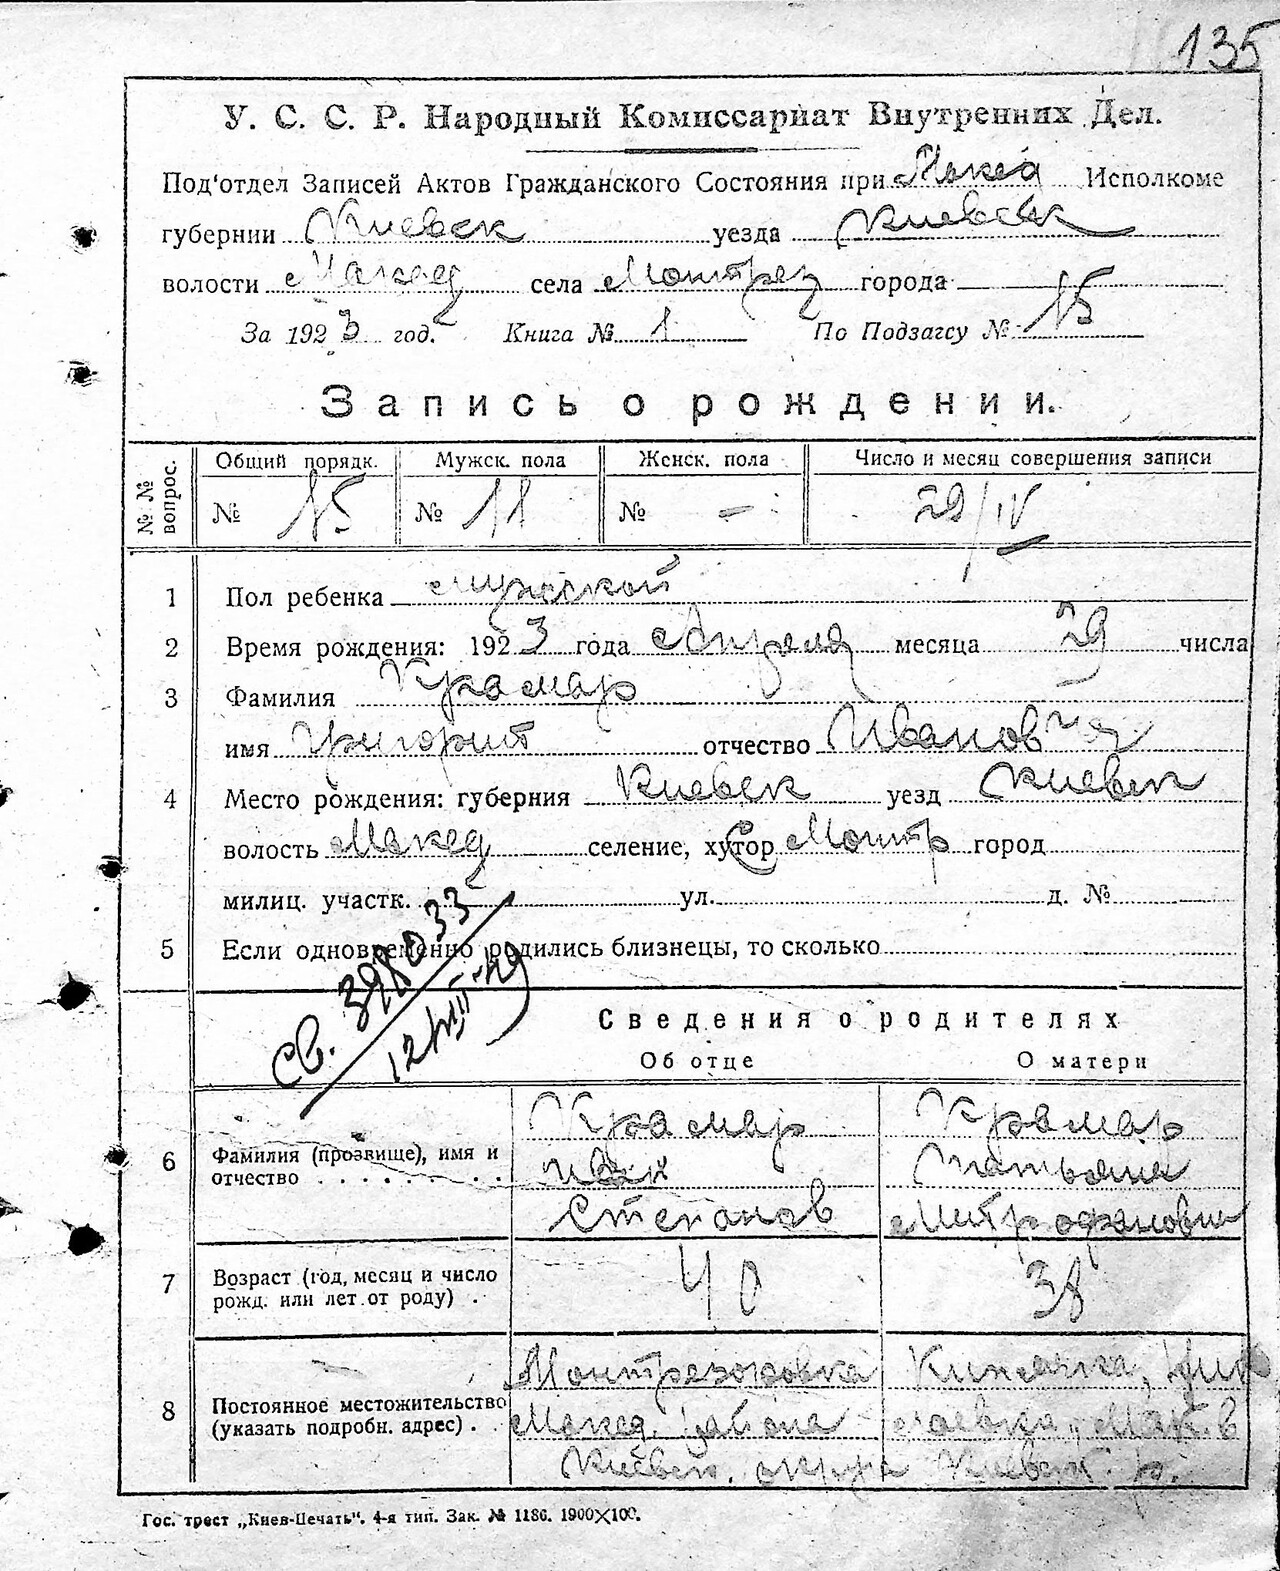 135
У. С. С. Р. Народный Комиссариат Внутренних Дел.
Под'отдел Записей Актов Гражданского Состояния при Макед Исполкоме
губернии Киевск уезда Киевск
волости Макед села Монтрез города
За 1923 год. Книга № 1 По Подзагсу № 15
Запись о рождении.
№ № вопрос. Общий порядк. Мужск. пола Женск. пола Число и месяц совершения записи
№ 15 № 11 № - 29/IV
1 Пол ребенка мужской
2 Время рождения: 1923 года Апреля месяца 29 числа
3 Фамилия Крамар
имя Григорий отчество Иванов
4 Место рождения: губерния Киевск уезд Киевск
волость Макед селение, хутор Монтр город
милиц. участк. ул. д. №
5 Если одновременно родились близнецы, то сколько
Св. 398033
12/VIII-49
Сведения о родителях
Об отце О матери
6 Фамилия (прозвище), имя и отчество
Крамар Крамар
Иван Татьяна
Степанов Митрофановна
7 Возраст (год, месяц и число рожд. или лет от роду) . 40 38
8 Постоянное местожительство (указать подробн. адрес) .
Монтрезовка
Макед. района Мак. в
Киевск. округа Киевск. р.
Гос. трест „Киев-Печать". 4-я тип. Зак. № 1186. 1900×100.